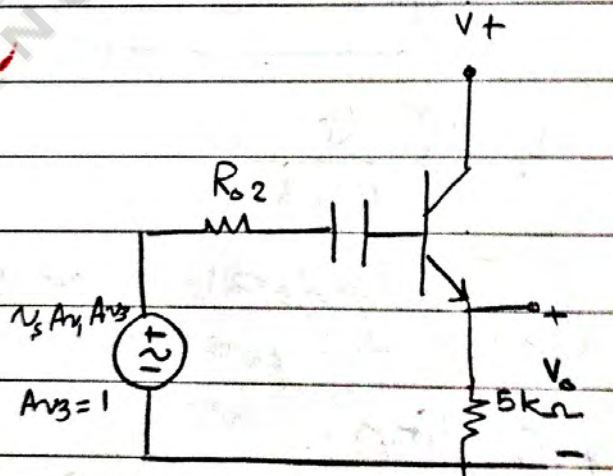 V+
Ro2
+
vs Av1 Av3
+
Vo
Av3 = 1
5kΩ
-